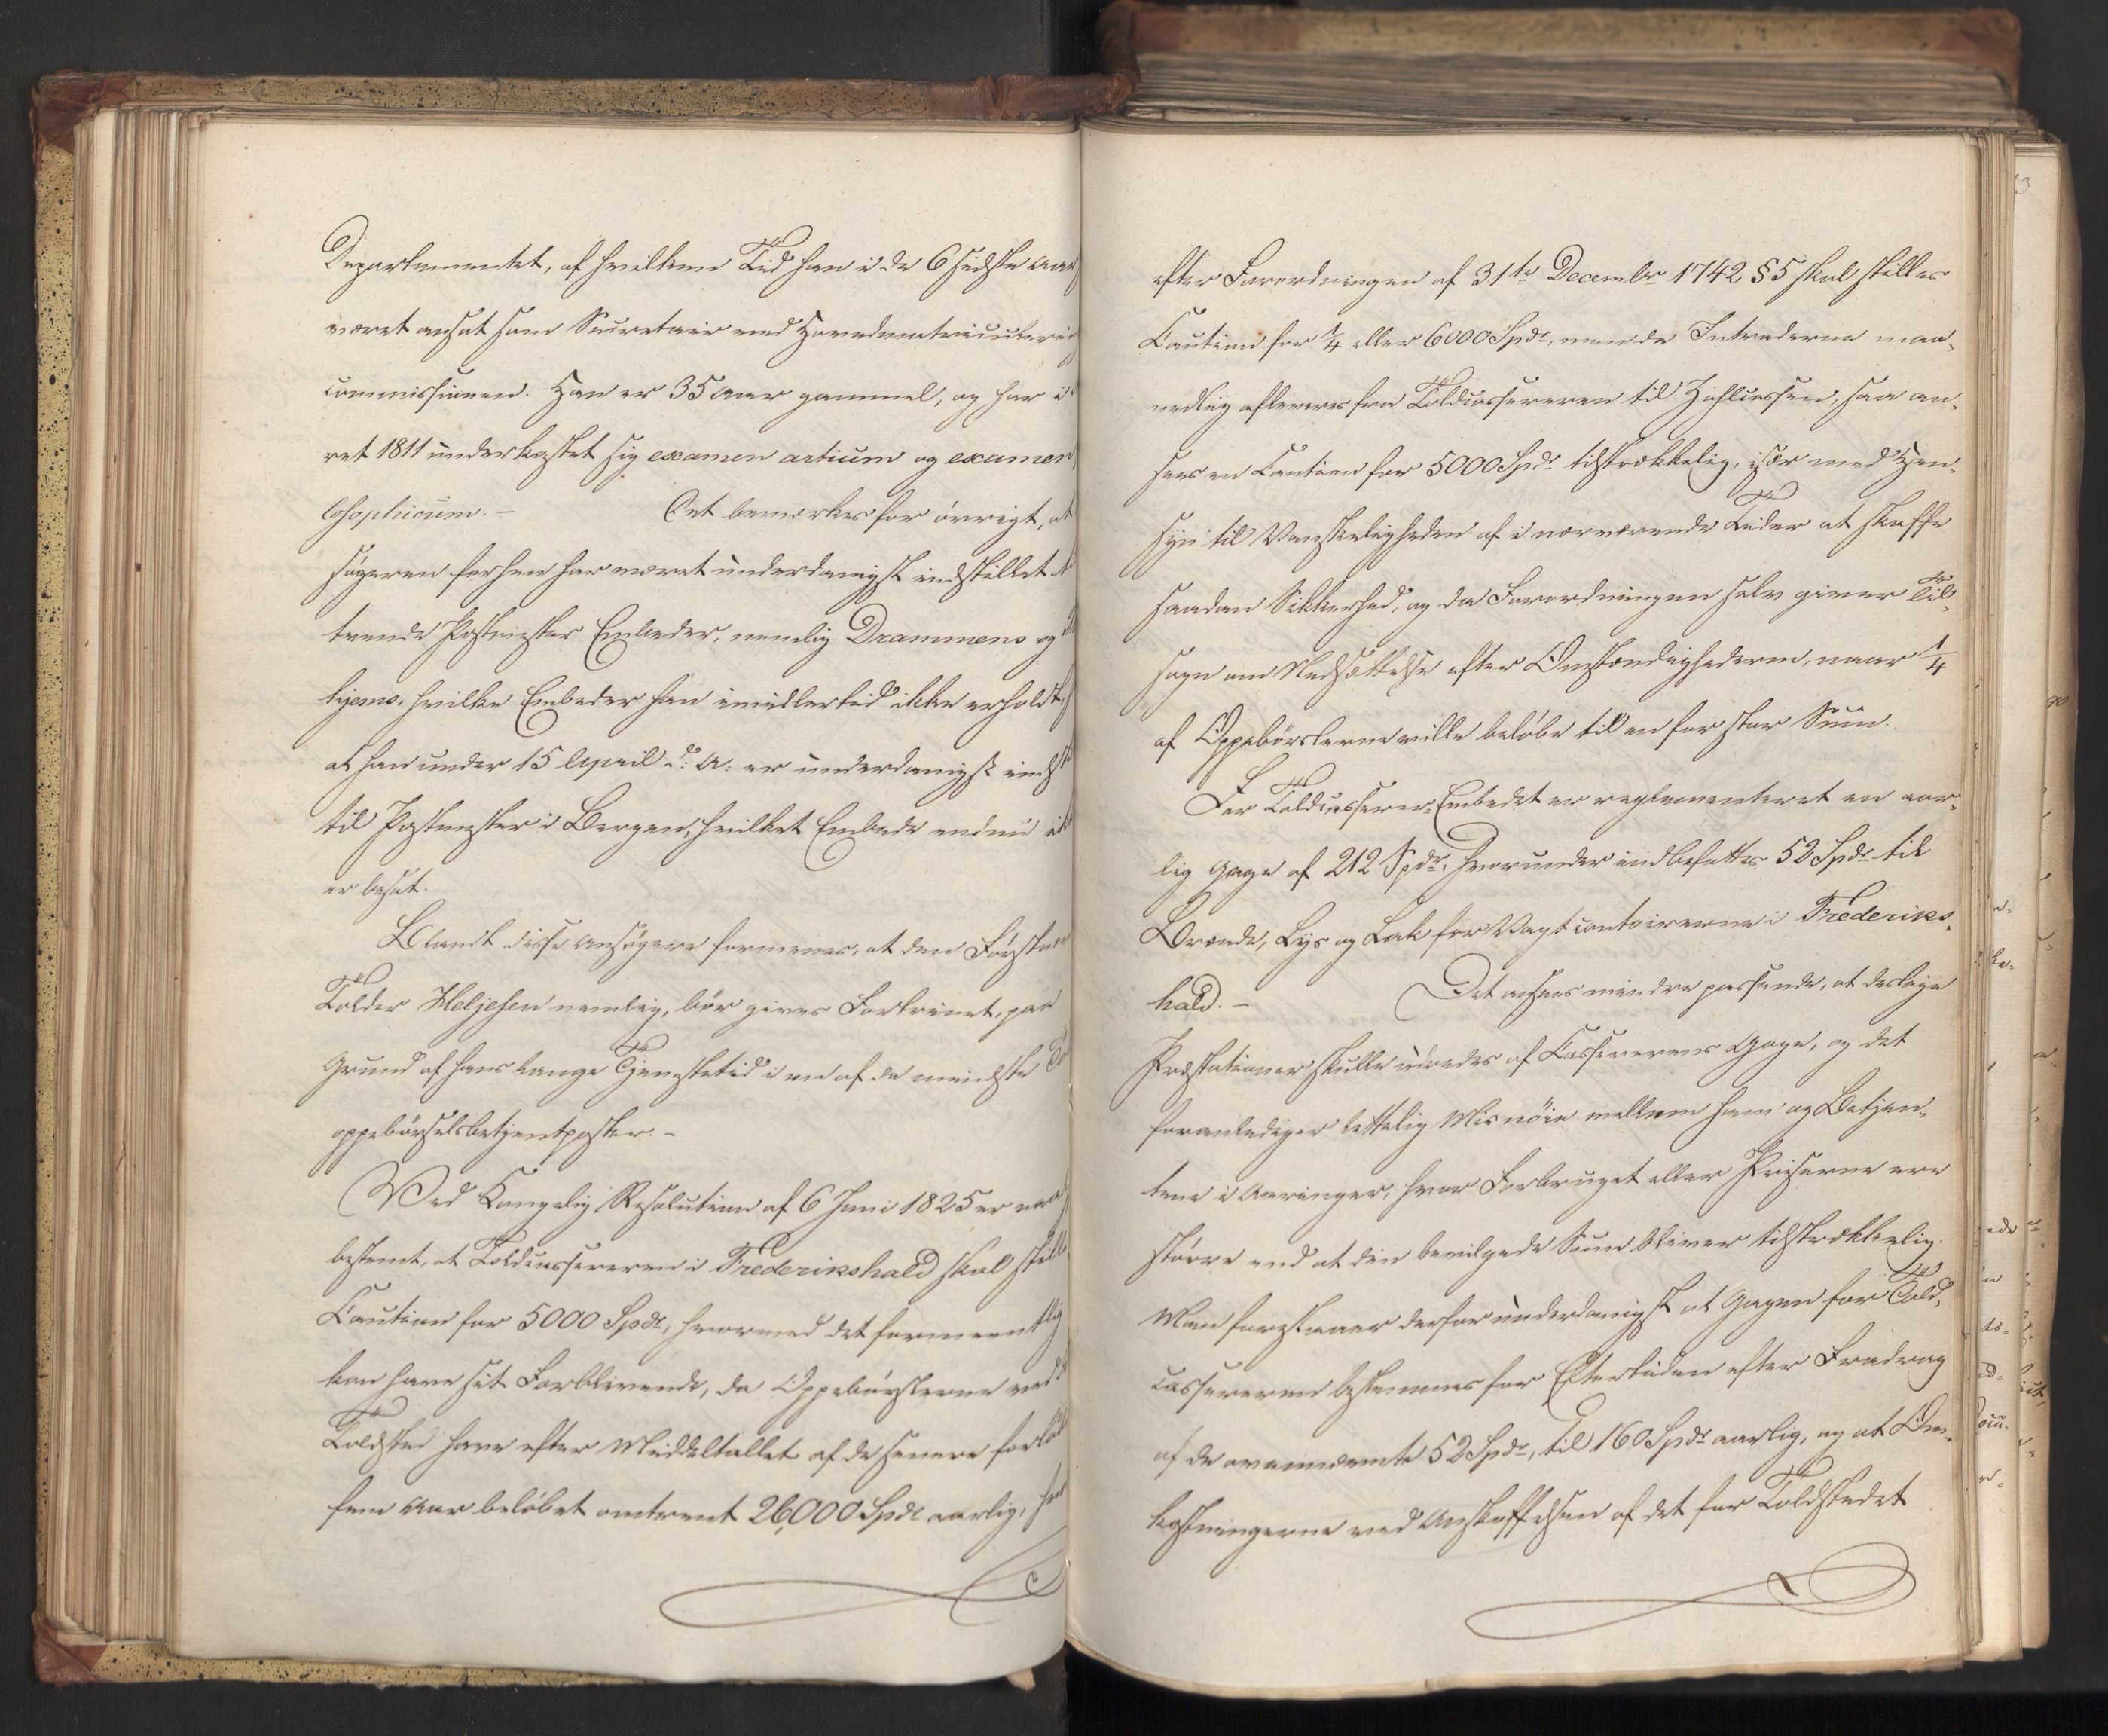 Departementet, af hvilken Tid han i de 6 sidste Aar
været ansat som Secretair ved Hovedmatriculerings
commissionen. Han er 35 Aar gammel, og har i
ret 1811 underkastet sig examen artium og examen
losophicum. – Det bemærkes for övrigt, at
søgeren forhen har været underdanigst indstillet t
tvende Postmester Embeder, nemlig Drammens og
hjems, hvilke Embeder han imidlertid ikke erholdt,
at han under 15 April d: A: er underdanigst indst
til Postmester i Bergen, hvilket Embede endnu ik
er besat.
Blandt disse Ansøgere formenes, at den Førstnæv
Tolder Heljesen nemlig, bør gives Fortrinet, paa
Grund af hans lange Tjenestetid i en af de mindste
oppebørselsbetjentposter. –
Ved Kongelig Resolution af 6 Juni 1825 er
bestemt, at Toldcassereren i Frederikshald skal still
Caution for 5000 Spdr, hvormed det formeentlig
kan have sit Forblivende, da Oppebørslerne ved
Toldsted have efter Middeltallet af de senere forløb
fem Aar beløbet omtrent 26,000 Spdr aarlig,
efter Forordningen af 31te Decembr 1742 § 5 skal stilles
Caution for 1/4 eller 6000 Spdr, men da Intraderne maa-
nedlig afleveres fra Toldcassereren til Zahlcassen, saa an-
sees en Caution for 5000 Spdr tilstrækkelig, især med Hen-
syn til Vanskeligheden af i nærværende Tider at skaffe
saadan Sikkerhed, og da Forordningen selv giver Til-
sagn om Nedsættelse efter Omstændighederne, naar 1/4
af Oppebørslerne ville beløbe til en for stor Sum.
For Toldcasserer-Embedet er reglementeret en aar-
lig Gage af 212 Spdr, hvorunder indbefattes 52 Spdr til
Brænde, Lys og Lak for Vagtcontoirerne i Frederiks-
hald. – Det ansees mindre passende, at deslige
Præstationer skulle udredes af Cassererens Gage, og det
foranlediger lettelig Misnöie mellem ham og Betjen-
tene i Aaringer, hvor Forbruget eller Priserne ere
større end at den bevilgede Sum bliver tilstrækkelig.
Man foreslaaer derfor underdanigst at Gagen for Told-
cassereren bestemmes for Eftertiden efter Fradrag
af de ovennævnte 52 Spdr, til 160 Spdr aarlig, og at Om-
kostningerne ved Anskaffelsen af det for Toldstedet